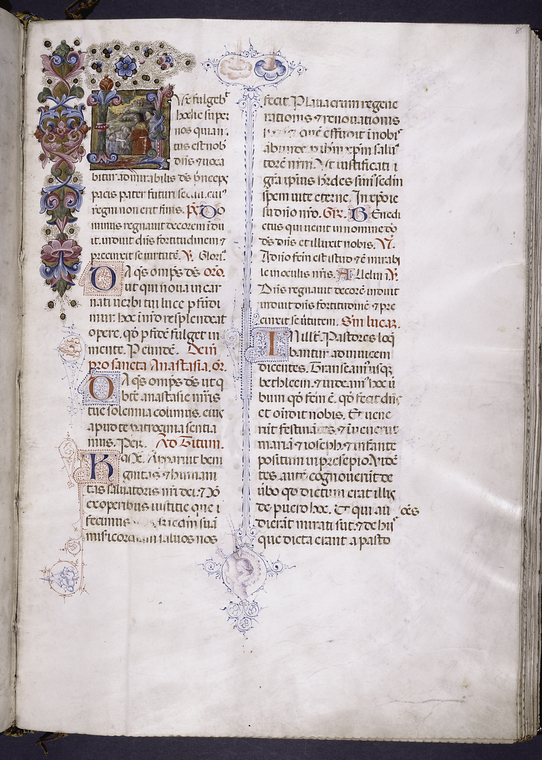 Ux fulgeb
hodie super
nos quia n
tus est nob
dns & uoca
bitur admirabilis ds princeps
pacis pater futuri seculi. cuius
regni non erit finis. ps Do
minus regnauit decorem idu
it. induit dns fortitudinem &
precinxit se uirtute. V. Glori.
DA qs omps ds oro.
ut qui noua incar
nati uerbi tui luce pfudi
mur. hoc in nro resplendeat
opere. qd p fide fulget in
mente. P eunde. Dein
pro sancta Anastasia. or.
DA qs omps ds ut q
bte anastasie mris
tue solemnia colimus. eius
apud te patrocinia sentia
mus. Per. Ad Titum.
KAme. Apparuit beni
gnitas & humani
tas saluatoris nri dei. & no
ex operibus iustitie que
fecimus suam
misericordiam saluos nos
fecit. P lauacrum regene
rationis & renouationis
que effudit i nobis
abunde p ihm xpm salua
torem nrm. Ut iustificati i
gratia ipsius heredes simus scdm
spem uite eterne. In xpo ie
su dno nro. Gr. Bened
ctus qui uenit in nomine do
ds dns et illuxit nobis. V.
A dno fcm est istud & e mirabi
le in oculis nris. Allelui V.
Dns regnauit decore induit
induit dns fortitudine & pre
cinxit se uirtutem. Sm lucas.
In illo t. Pastores loq
bantur ad inuicem
dicentes. Transeamus usq
bethleem. & uideamus hoc u
bum qd fcm e. qd fecit dns
et ondit nobis. Et uene
runt festinantes & inuenerunt
maria & ioseph. & infante
positum in presepio. Viden
tes aute cognouerunt de
ubo qd dictum erat illis
de puero hoc. Et qui au
dierat mirati sut. & de his
que dicta erant a pasto